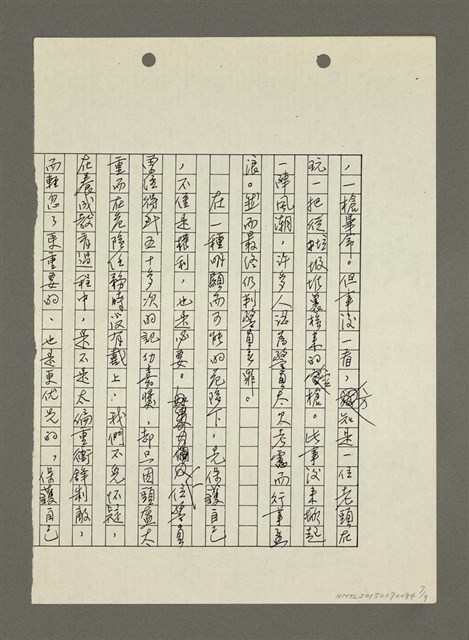 ，一槍畢命。但事後一看，方知是一位老頭在
玩一把從垃圾堆裏撿來的空槍。此事後來掀起
一陣風潮，許多人認為警員太欠考慮而行事孟
浪。然而最終仍判警員無罪。
在一種明顯而可能的危險下，先保護自己
，不僅是權利，也是必要。一位警員
曾獲得到五十多次的記功嘉獎，却只因頭盔太
重而在危險任務時沒有戴上，我們不免懷疑，
在養成教育過程中，是不是太偏重衝鋒制敵，
而輕忽了更重要的、也是更优先的，保護自己
NMTL20150170094 7/19